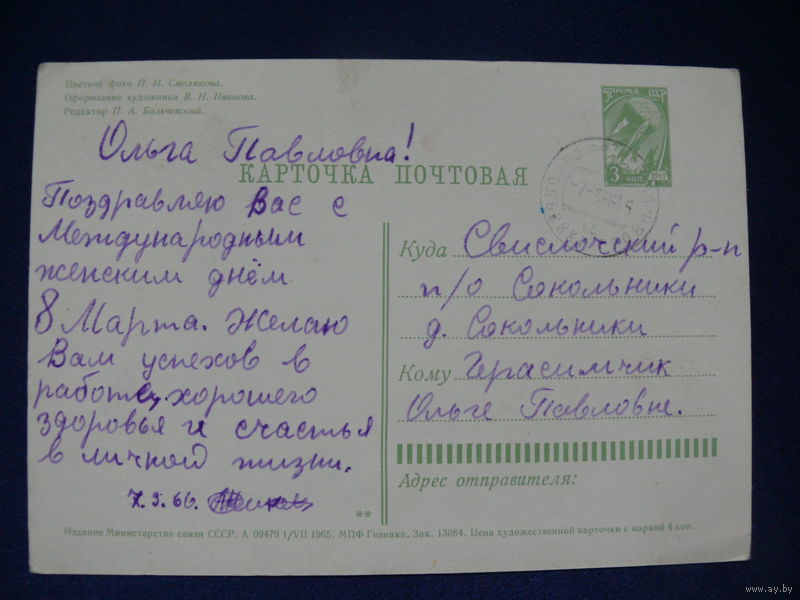 Цветное фото П. И. Смолякова.
Оформление художника В. Н. Иванова.
Редактор П. А. Балючевский.
ПОЧТА СССР
3 коп.
КАРТОЧКА ПОЧТОВАЯ
Ольга Павловна!
Поздравляю Вас с
Международным
женским днём
8 Марта. Желаю
Вам успехов в
работе, хорошего
здоровья и счастья
в личной жизни.
7.3.66.
Куда Свислочский р-н
п/о Сокольники
д. Сокольники
Кому Герасимчик
Ольге Павловне.
Адрес отправителя:
**
Издание Министерства связи СССР. А 09479 1/VII 1965. МПФ Гознака. Зак. 13084. Цена художественной карточки с маркой 4 коп.
www.ay.by